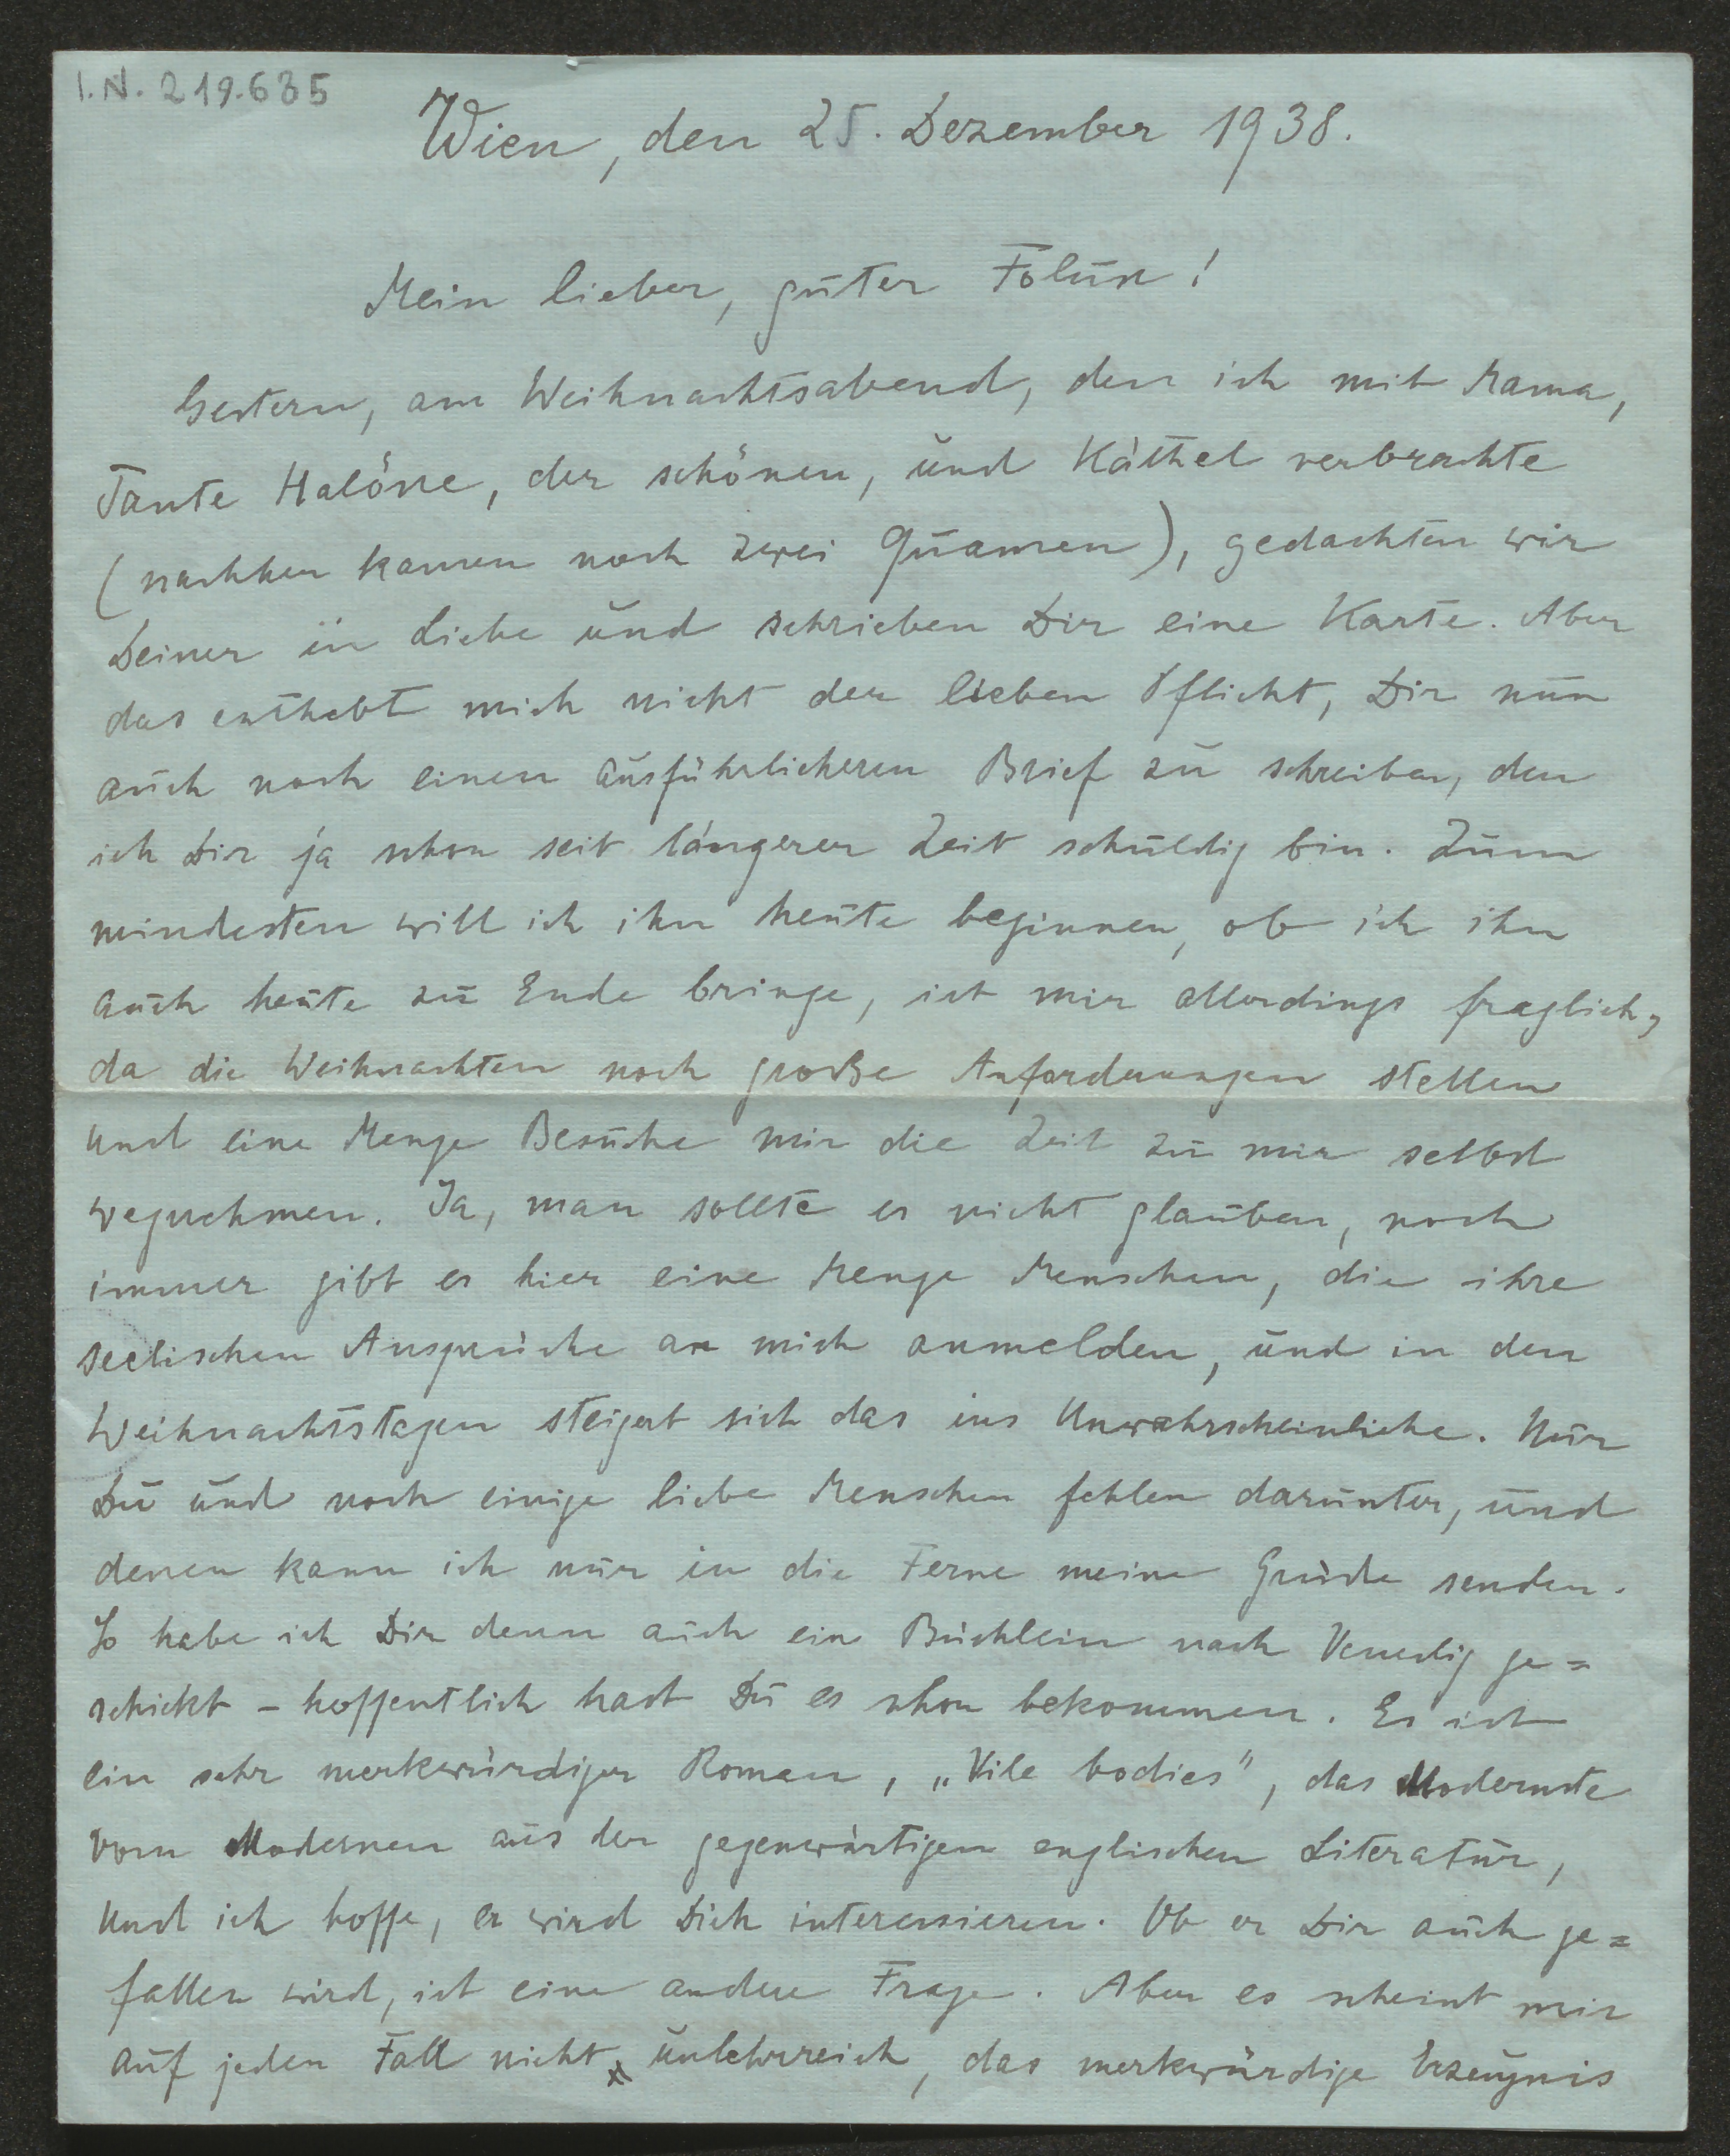 I.N. 219.635
Wien, den 25. Dezember 1938.
Mein lieber, guter Folun!
Gestern, am Weihnachtsabend, den ich mit Mama,
Tante Halöne, der schönen, und Käthel verbrachte
(nachher kamen noch zwei Quamen), gedachten wir
Deiner in Liebe und schrieben Dir eine Karte. Aber
das enthebt mich nicht der lieben Pflicht, Dir nun
auch noch einen ausführlicheren Brief zu schreiben, den
ich Dir ja schon seit längerer Zeit schuldig bin. Zum
mindesten will ich ihn heute beginnen, ob ich ihn
auch heute zu Ende bringe, ist mir allerdings fraglich,
da die Weihnachten noch große Anforderungen stellen
und eine Menge Besuche mir die Zeit zu mir selbst
wegnehmen. Ja, man sollte es nicht glauben, noch
immer gibt es hier eine Menge Menschen, die ihre
seelischen Ansprüche an mich anmelden, und in den
Weihnachtstagen steigert sich das ins Unwahrscheinliche. Nur
Du und noch einige liebe Menschen fehlen darunter, und
denen kann ich nur in die Ferne meine Grüße senden.
So habe ich Dir denn auch ein Büchlein nach Venedig ge=
schickt – hoffentlich hast Du es schon bekommen. Es ist
ein sehr merkwürdiger Roman, „Vile bodies", das Modernste
vom Modernen aus der gegenwärtigen englischen Literatur,
und ich hoffe, er wird Dich interessieren. Ob er Dir auch ge=
fallen wird, ist eine andere Frage. Aber es scheint mir
auf jeden Fall nicht unlehrreich, das merkwürdige Erzeugnis